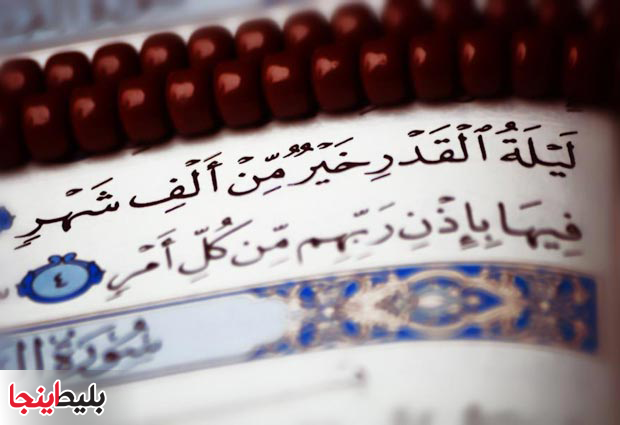 لَيْلَةُ ٱلْقَدْرِ خَيْرٌ مِّنْ أَلْفِ شَهْرٍ
فِيهَا بِإِذْنِ رَبِّهِم مِّن كُلِّ أَمْرٍ ٤
سُورَةُ
بلیط‌اینجا